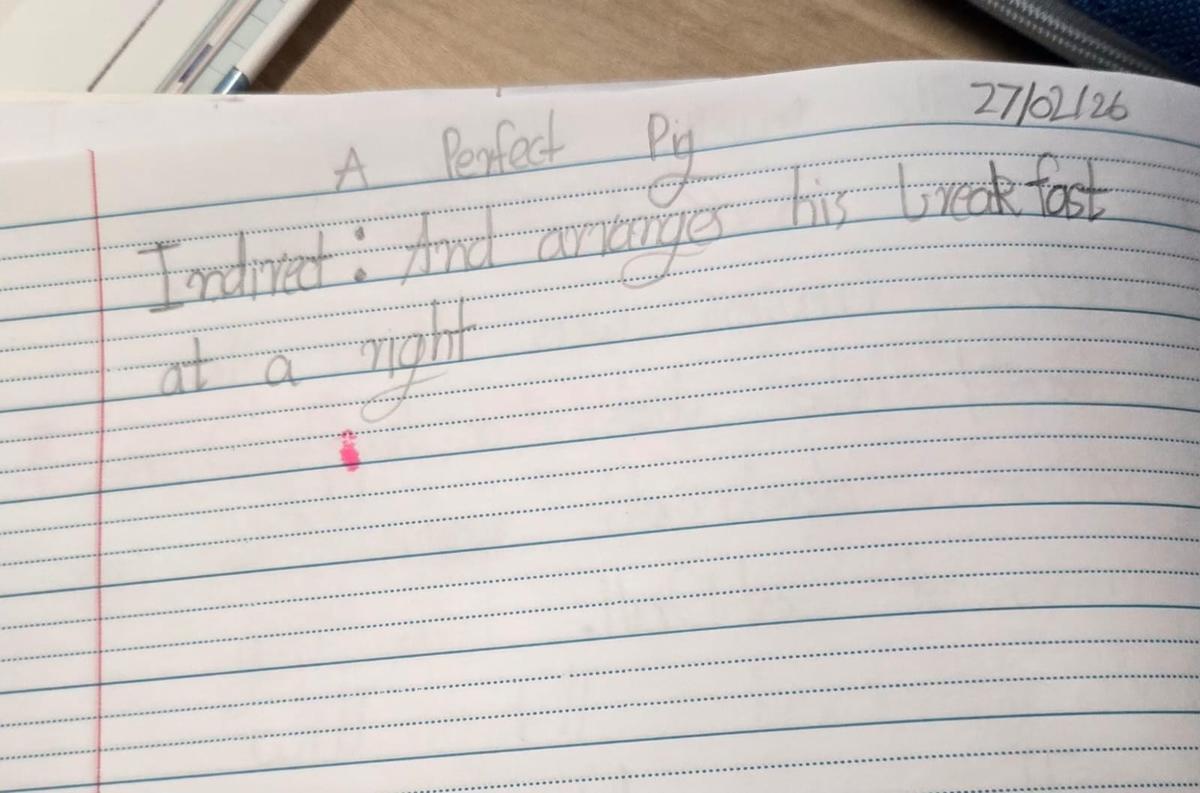 27/02/26
A Perfect Pig
Indirect: And arranges his breakfast
at a right